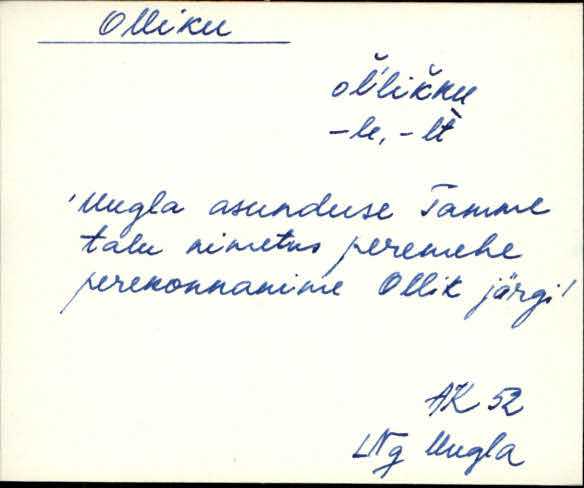 Olliku
ol̆'lik̆ku
-le, -lt̆
'Uugla asunduse Tamme
talu nimetus peremehe
perekonnanime Ollik järgi'
AK 52
LNg Uugla